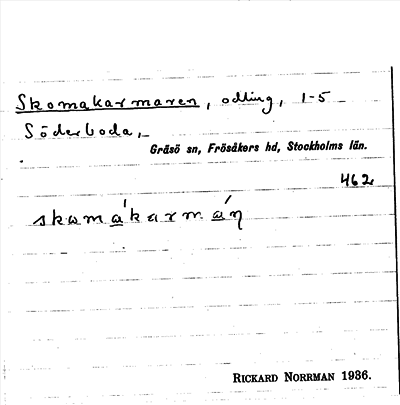 Skomakarmaren, odling, 1-5
Söderboda,
Gräsö sn, Frösåkers hd, Stockholms län.
462
skɷmákarmáṇ
RICKARD NORRMAN 1936.